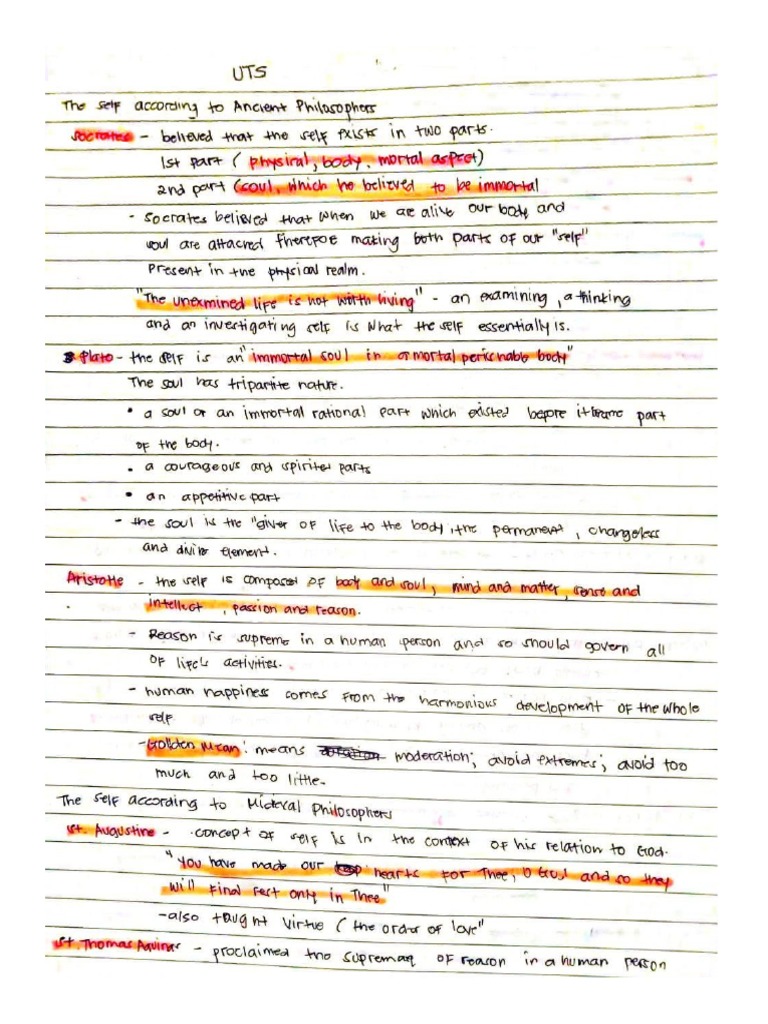 UTS
The self according to Ancient Philosophers
Socrates - believed that the self exists in two parts.
1st part ( physiral, body, mortal aspect)
2nd part (soul, which he believed to be immortal
- Socrates believed that when we are alive our body and
soul are attacred therefoe making both parts of our "self"
Present in the physical realm.
"The unexmined life is not worth living" - an examining, a thinking
and an investigating self is what the self essentially is.
Plato - the self is an "immortal soul in a mortal perishable body"
The soul has tripartite nature.
• a soul or an immortal rational part which existed before it became part
of the body.
• a courageous and spirited parts
• an appetitive part
- the soul is the "giver of life to the body, the permanent, changeless
and divine element.
Aristotle - the self is composed of body and soul, mind and matter, sense and
intellect, passion and reason.
- Reason is supreme in a human person and so should govern all
of life's activities.
- human happiness comes from the harmonious development of the whole
self
- Gollden Mean: means moderation; avoid extremes; avoid too
much and too little.
The self according to Mideval Philosophers
st. Augustine - concept of self is in the context of his relation to God.
"You have made our hearts for Thee, O God and so they
will final rest only in Thee"
- also taught virtue ( the order of love"
st. Thomas Aquinas - proclaimed the supremacy of reason in a human person